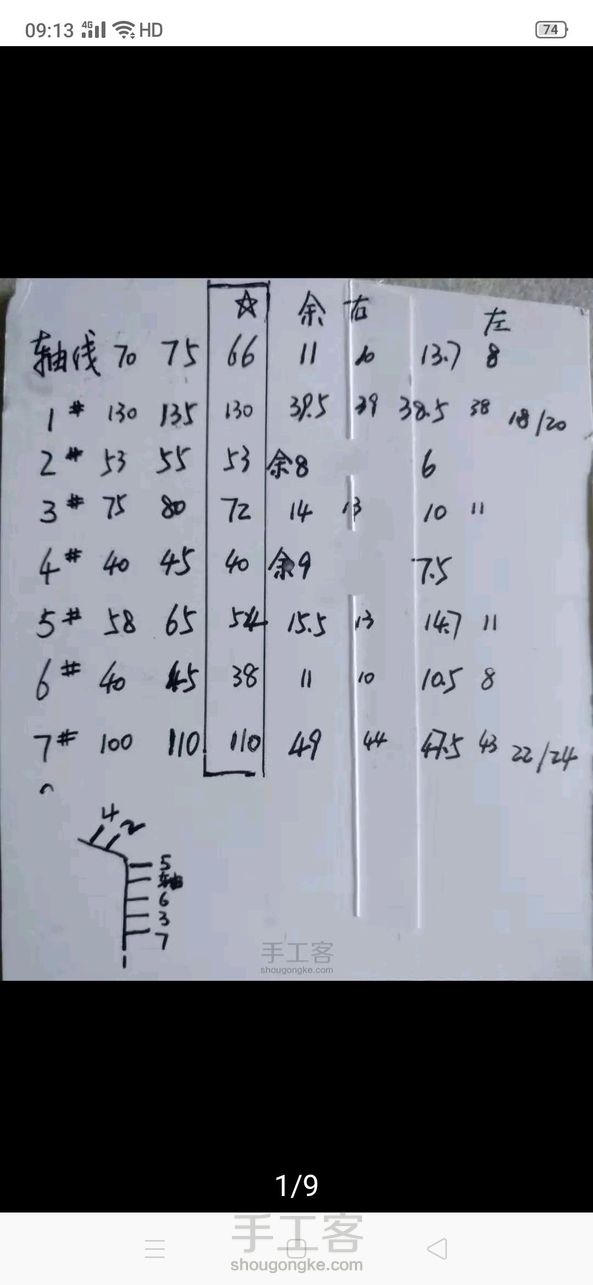 09:13 4G HD 74
☆ 余 右 左
轴线 70 75 66 11 10 13.7 8
1# 130 135 130 39.5 39 38.5 38 18/20
2# 53 55 53 余8 6
3# 75 80 72 14 13 10 11
4# 40 45 40 余9 7.5
5# 58 65 54 15.5 13 14.7 11
6# 40 45 38 11 10 10.5 8
7# 100 110 110 49 44 47.5 43 22/24
4 2
5
轴
6
3
7
1
手工客
shougongke.com
1/9
手工客
shougongke.com